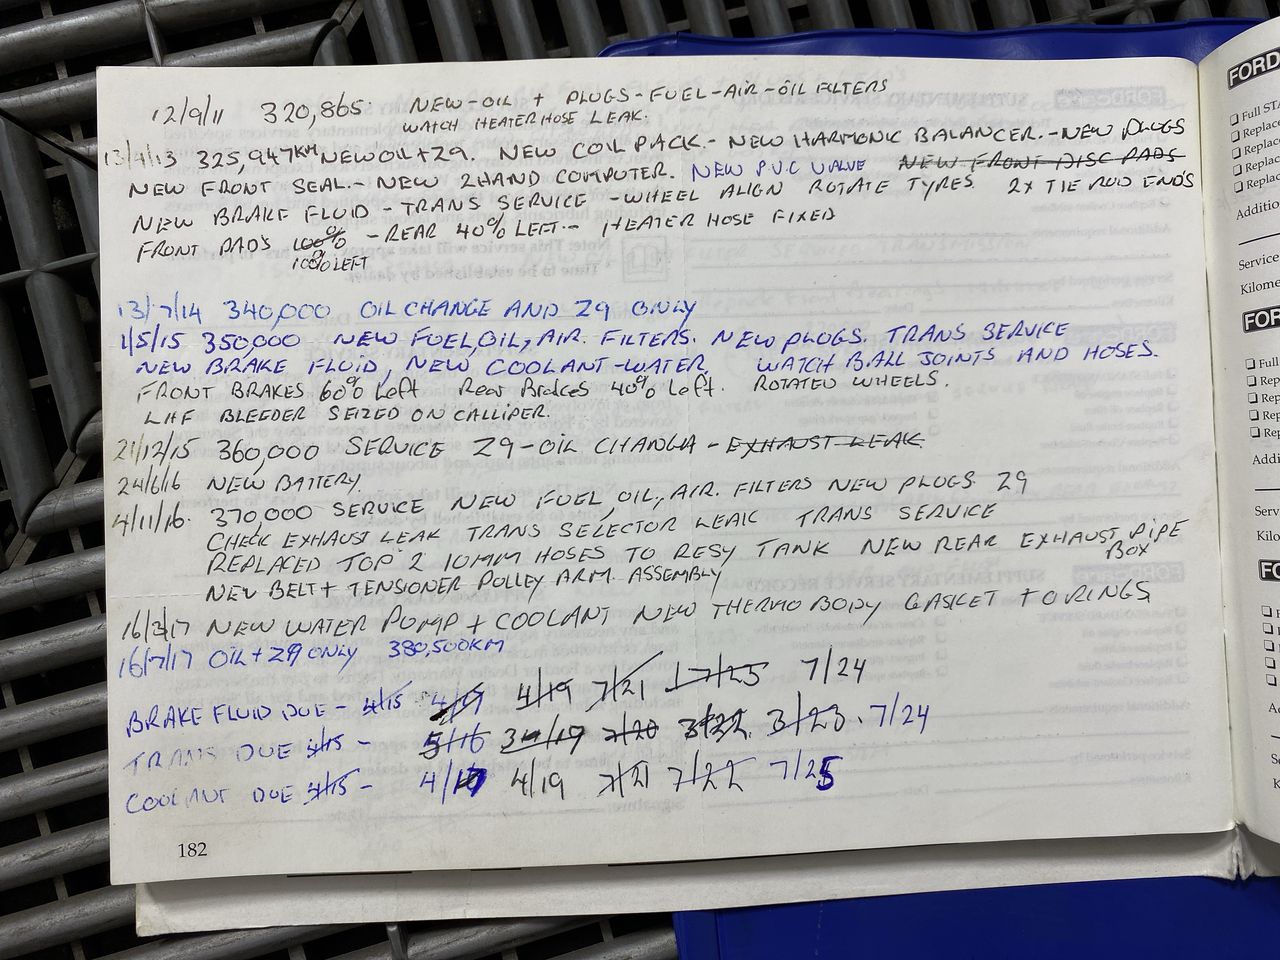 12/9/11 320,865. NEW-OIL + PLUGS-FUEL-AIR-OIL FILTERS
WATCH HEATER HOSE LEAK.
13/4/13 325,947KM NEW OIL + Z9. NEW COIL PACK.- NEW HARMONIC BALANCER.-NEW PLUGS
NEW FRONT SEAL.- NEW 2HAND COMPUTER. NEW P.V.C VALVE NEW FRONT DISC PADS
NEW BRAKE FLUID - TRANS SERVICE - WHEEL ALIGN ROTATE TYRES 2X TIE ROD END'S
FRONT PADS 100% - REAR 40% LEFT.- HEATER HOSE FIXED
100% LEFT
13/7/14 340,000 OIL CHANGE AND Z9 ONLY
1/5/15 350,000 NEW FUEL, OIL, AIR. FILTERS. NEW PLUGS. TRANS SERVICE
NEW BRAKE FLUID, NEW COOLANT-WATER, WATCH BALL JOINTS AND HOSES.
FRONT BRAKES 60% Left Rear Brakes 40% Left. ROTATED WHEELS.
LHF BLEEDER SEIZED ON CALLIPER.
21/12/15 360,000 SERVICE Z9-OIL CHANGA - EXHAUST LEAK
24/6/16 NEW BATTERY.
4/11/16. 370,000 SERVICE NEW FUEL, OIL, AIR. FILTERS NEW PLUGS Z9
CHECK EXHAUST LEAK TRANS SELECTOR LEAK TRANS SERVICE
REPLACED TOP 2 10MM HOSES TO RESY TANK NEW REAR EXHAUST PIPE
BOX
NEW BELT + TENSIONER PULLEY ARM. ASSEMBLY
16/3/17 NEW WATER PUMP + COOLANT NEW THERMO BODY GASKET + O RINGS
16/7/17 OIL + Z9 ONLY 380,500KM
BRAKE FLUID DUE - 4/15 4/19 7/21 7/25 7/24
TRANS DUE 4/15 - 5/16 7/20 3/22. 3/23. 7/24
COOLANT DUE 4/15 - 4/17 4/19 7/21 7/22 7/25
182
FORD
Full STA
Replace
Replace
Replac
Replac
Additio
Service
Kilome
FOR
Full
Rep
Rep
Rep
Addi
Serv
Kilo
FO